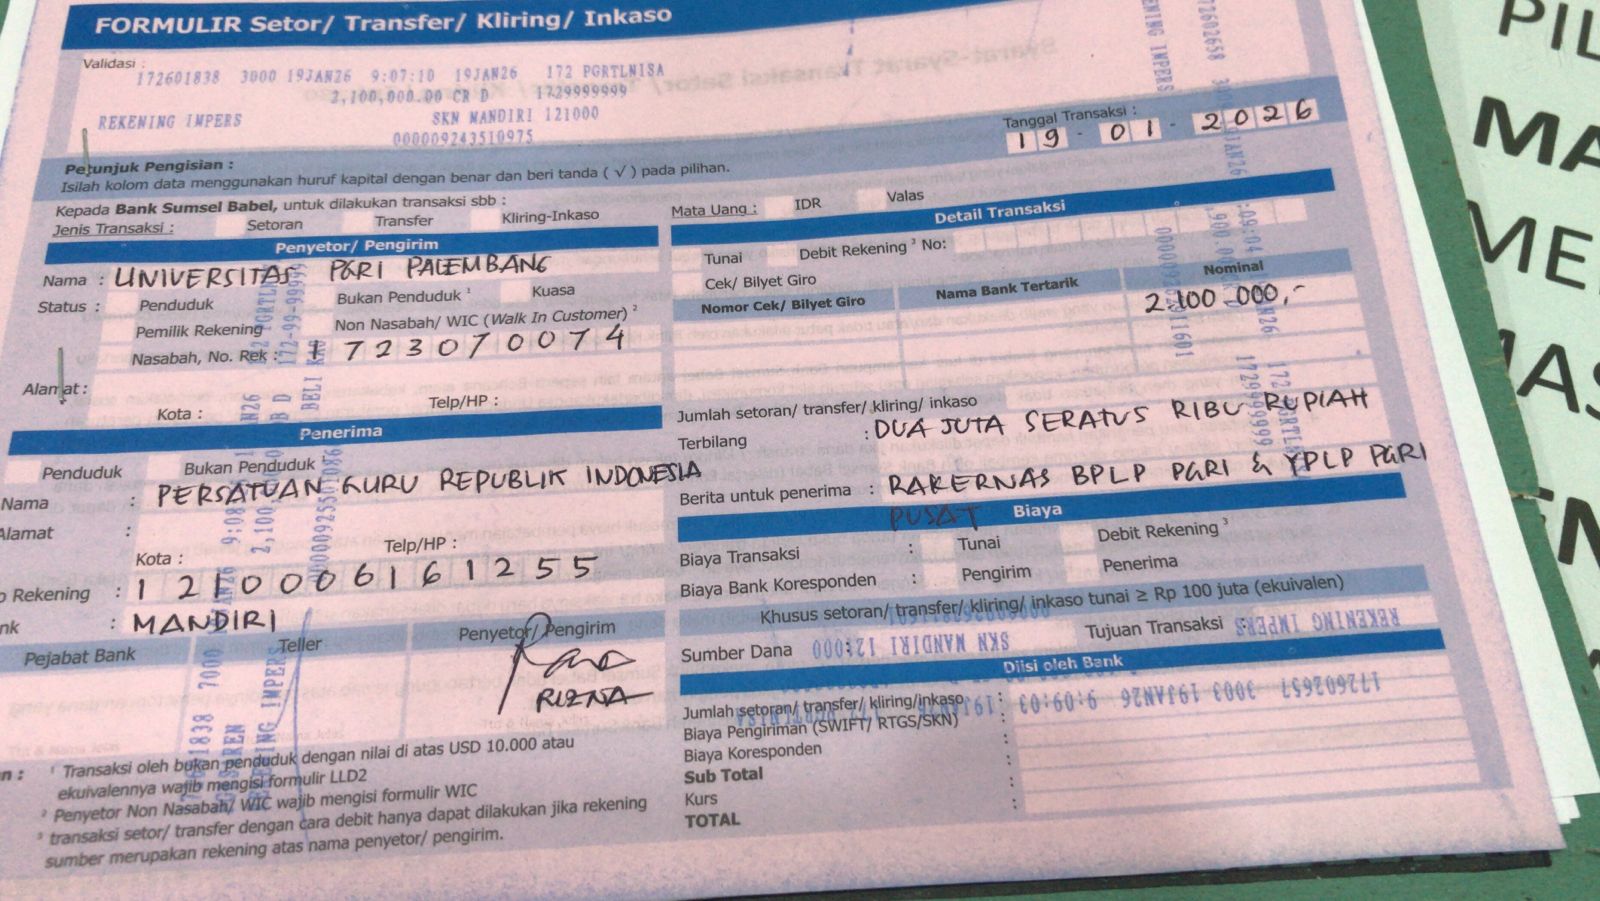 FORMULIR Setor/ Transfer/ Kliring/ Inkaso
Validasi :
172601838 3000 19JAN26 9:07:10 19JAN26 172 PGRTLNISA
2,100,000.00 CR D 1729999999
REKENING IMPERS SKN MANDIRI 121000
000009243510975
Tanggal Transaksi :
19 - 01 - 2026
Petunjuk Pengisian :
Isilah kolom data menggunakan huruf kapital dengan benar dan beri tanda ( √ ) pada pilihan.
Kepada Bank Sumsel Babel, untuk dilakukan transaksi sbb :
Jenis Transaksi : Setoran Transfer Kliring-Inkaso
Mata Uang : IDR Valas
Penyetor/ Pengirim
Nama : UNIVERSITAS PGRI PALEMBANG
Status : Penduduk Bukan Penduduk ¹ Kuasa
Pemilik Rekening Non Nasabah/ WIC (Walk In Customer) ²
Nasabah, No. Rek : 1723070074
Alamat :
Kota : Telp/HP :
Detail Transaksi
Tunai Debit Rekening ³ No:
Cek/ Bilyet Giro
Nomor Cek/ Bilyet Giro Nama Bank Tertarik Nominal
2.100.000,-
Jumlah setoran/ transfer/ kliring/ inkaso
Terbilang : DUA JUTA SERATUS RIBU RUPIAH
Berita untuk penerima : RAKERNAS BPLP PGRI & YPLP PGRI
PUSAT
Penerima
Penduduk Bukan Penduduk ¹
Nama : PERSATUAN GURU REPUBLIK INDONESIA
Alamat :
Kota : Telp/HP :
o Rekening : 1210006161255
nk : MANDIRI
Pejabat Bank Teller Penyetor/ Pengirim
RIZNA
Biaya
Biaya Transaksi : Tunai Debit Rekening ³
Biaya Bank Koresponden : Pengirim Penerima
Khusus setoran/ transfer/ kliring/ inkaso tunai ≥ Rp 100 juta (ekuivalen)
Sumber Dana Tujuan Transaksi :
SKN MANDIRI 121000
REKENING IMPERS
Diisi oleh Bank
172602657 3003 19JAN26 9:09:03 19JAN26
Jumlah setoran/ transfer/ kliring/inkaso :
Biaya Pengiriman (SWIFT/ RTGS/SKN) :
Biaya Koresponden :
Sub Total :
Kurs :
TOTAL :
n : ¹ Transaksi oleh bukan penduduk dengan nilai di atas USD 10.000 atau
ekuivalennya wajib mengisi formulir LLD2
² Penyetor Non Nasabah/ WIC wajib mengisi formulir WIC
³ transaksi setor/ transfer dengan cara debit hanya dapat dilakukan jika rekening
sumber merupakan rekening atas nama penyetor/ pengirim.
PIL
MA
ME
MAS